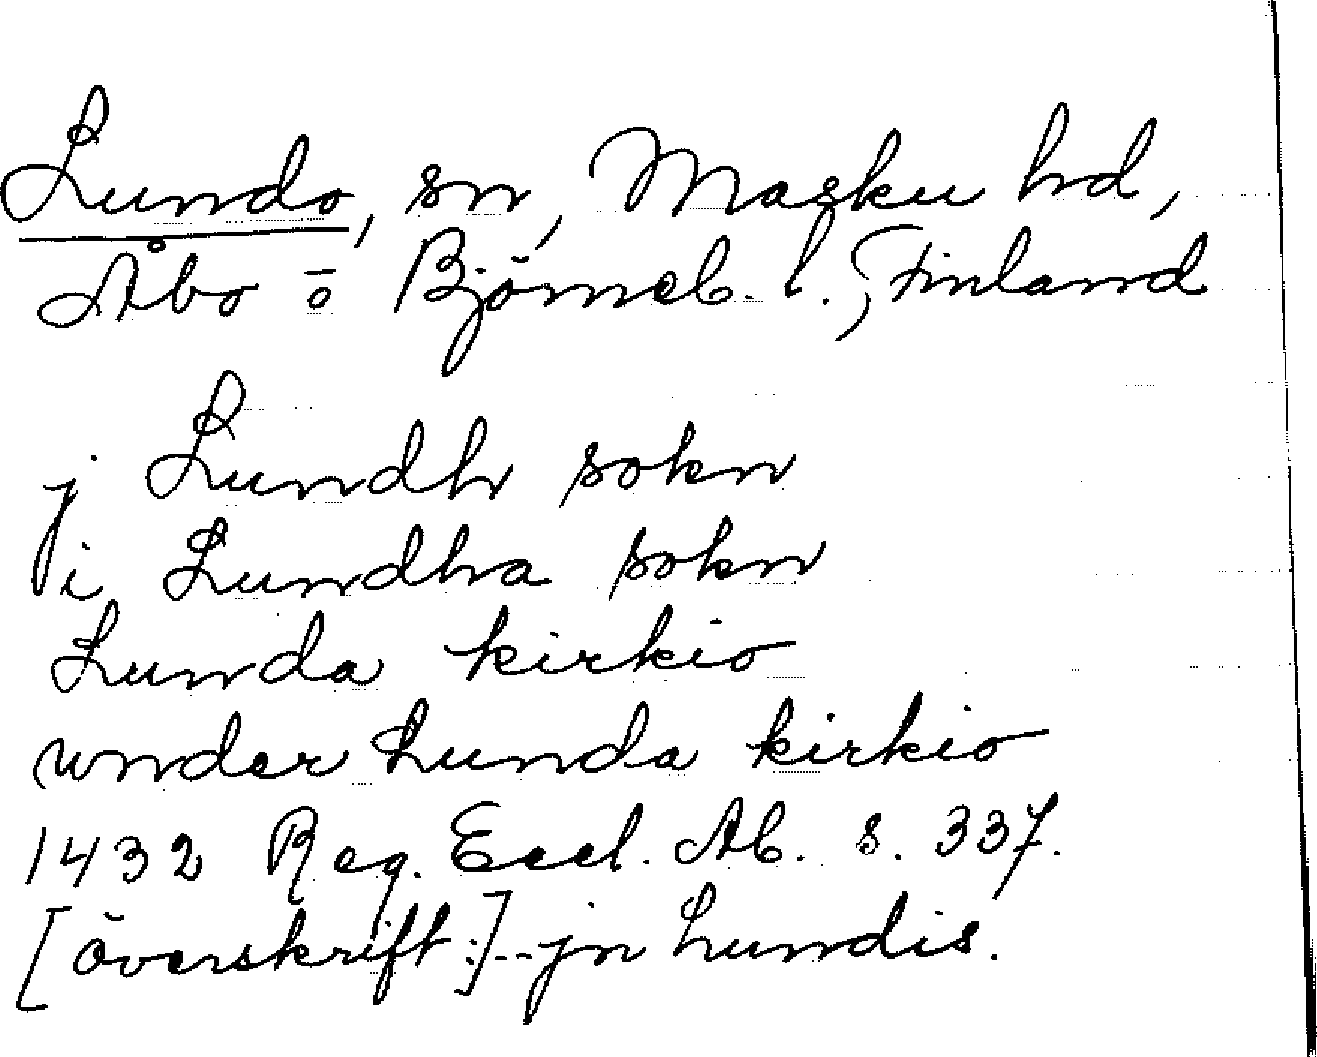 Lundo, sn, Masku hd,
Åbo o Björneb. l., Finland
j Lundh sokn
i Lundha sokn
Lunda kirkio
wnder Lunda kirkio
1432 Reg. Eccl. Ab. s. 337.
[överskrift:] - - jn Lundis.